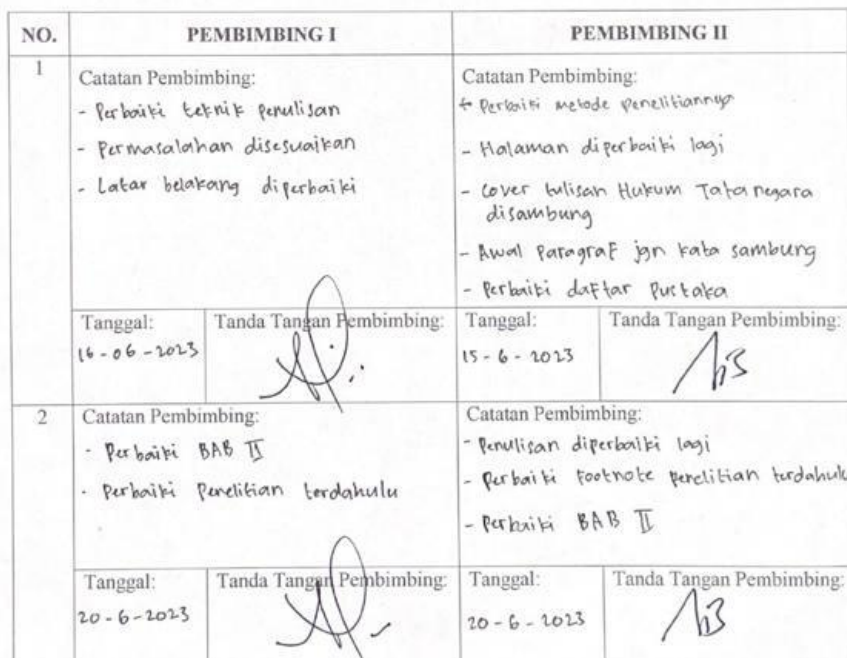 NO.
PEMBIMBING I
PEMBIMBING II
1
Catatan Pembimbing:
- Perbaiki teknik penulisan
- Permasalahan disesuaikan
- Latar belakang diperbaiki
Catatan Pembimbing:
- Perbaiki metode penelitiannya
- Halaman diperbaiki lagi
- Cover tulisan Hukum Tata negara
disambung
- Awal Paragraf jgn kata sambung
- Perbaiki daftar Pustaka
Tanggal:
16-06-2023
Tanda Tangan Pembimbing:
Tanggal:
15-6-2023
Tanda Tangan Pembimbing:
2
Catatan Pembimbing:
- Perbaiki BAB II
- Perbaiki Penelitian terdahulu
Catatan Pembimbing:
- Penulisan diperbaiki lagi
- Perbaiki Footnote penelitian terdahulu
- Perbaiki BAB II
Tanggal:
20-6-2023
Tanda Tangan Pembimbing:
Tanggal:
20-6-2023
Tanda Tangan Pembimbing: